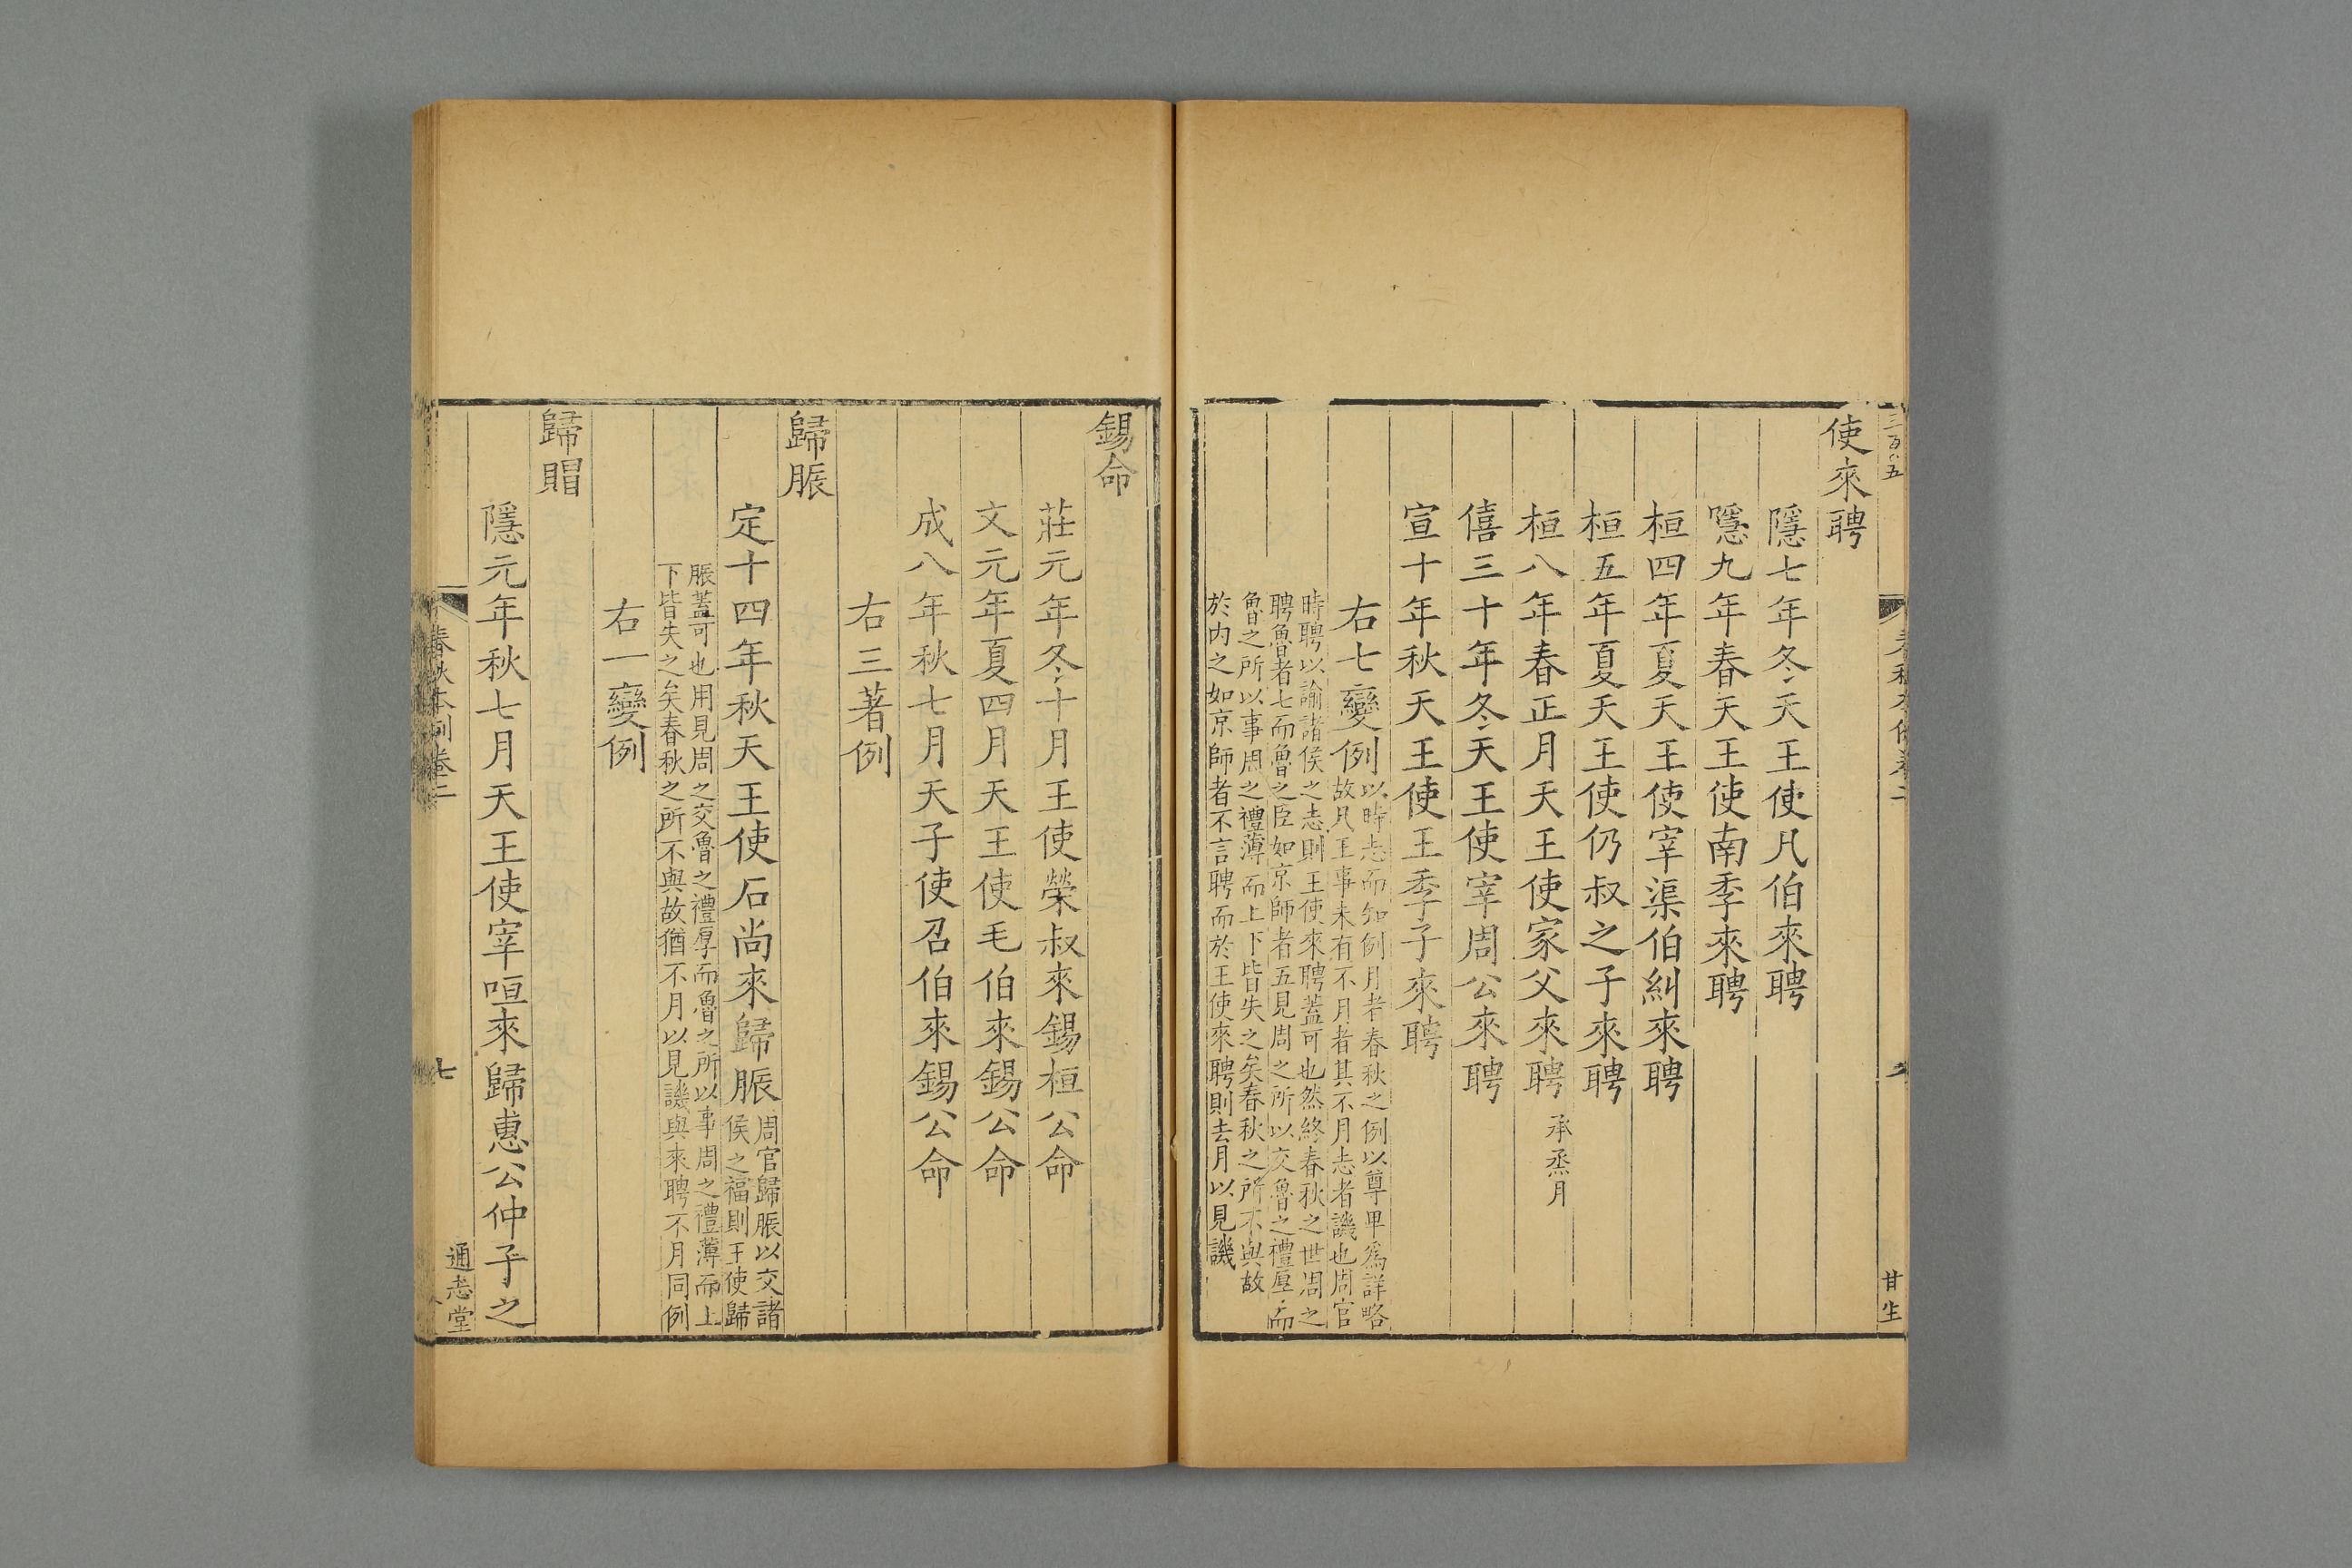 三百八五
甘生
使來聘
隱七年冬天王使凡伯來聘
隱九年春天王使南季來聘
桓四年夏天王使宰渠伯糾來聘
桓五年夏天王使仍叔之子來聘
桓八年春正月天王使家父來聘承烝月
僖三十年冬天王使宰周公來聘
宣十年秋天王使王季子來聘
右七變例以時志而知例月者春秋之例以尊卑爲詳略
故凡王事未有不月者其不月志者譏也周官
時聘以諭諸侯之志則王使來聘蓋可也然終春秋之世周之
聘魯者七而魯之臣如京師者五見周之所以交魯之禮厚而
魯之所以事周之禮薄而上下皆失之矣春秋之所不與故
於内之如京師者不言聘而於王使來聘則去月以見譏
錫命
莊元年冬十月王使榮叔來錫桓公命
文元年夏四月天王使毛伯來錫公命
成八年秋七月天子使召伯來錫公命
右三著例
歸脤
定十四年秋天王使石尚來歸脤周官歸脤以交諸
侯之福則王使歸
脤蓋可也用見周之交魯之禮厚而魯之所以事周之禮薄而上
下皆失之矣春秋之所不與故猶不月以見譏與來聘不月同例
右一變例
歸賵
隱元年秋七月天王使宰咺來歸惠公仲子之
春秋本例卷二
七
通志堂